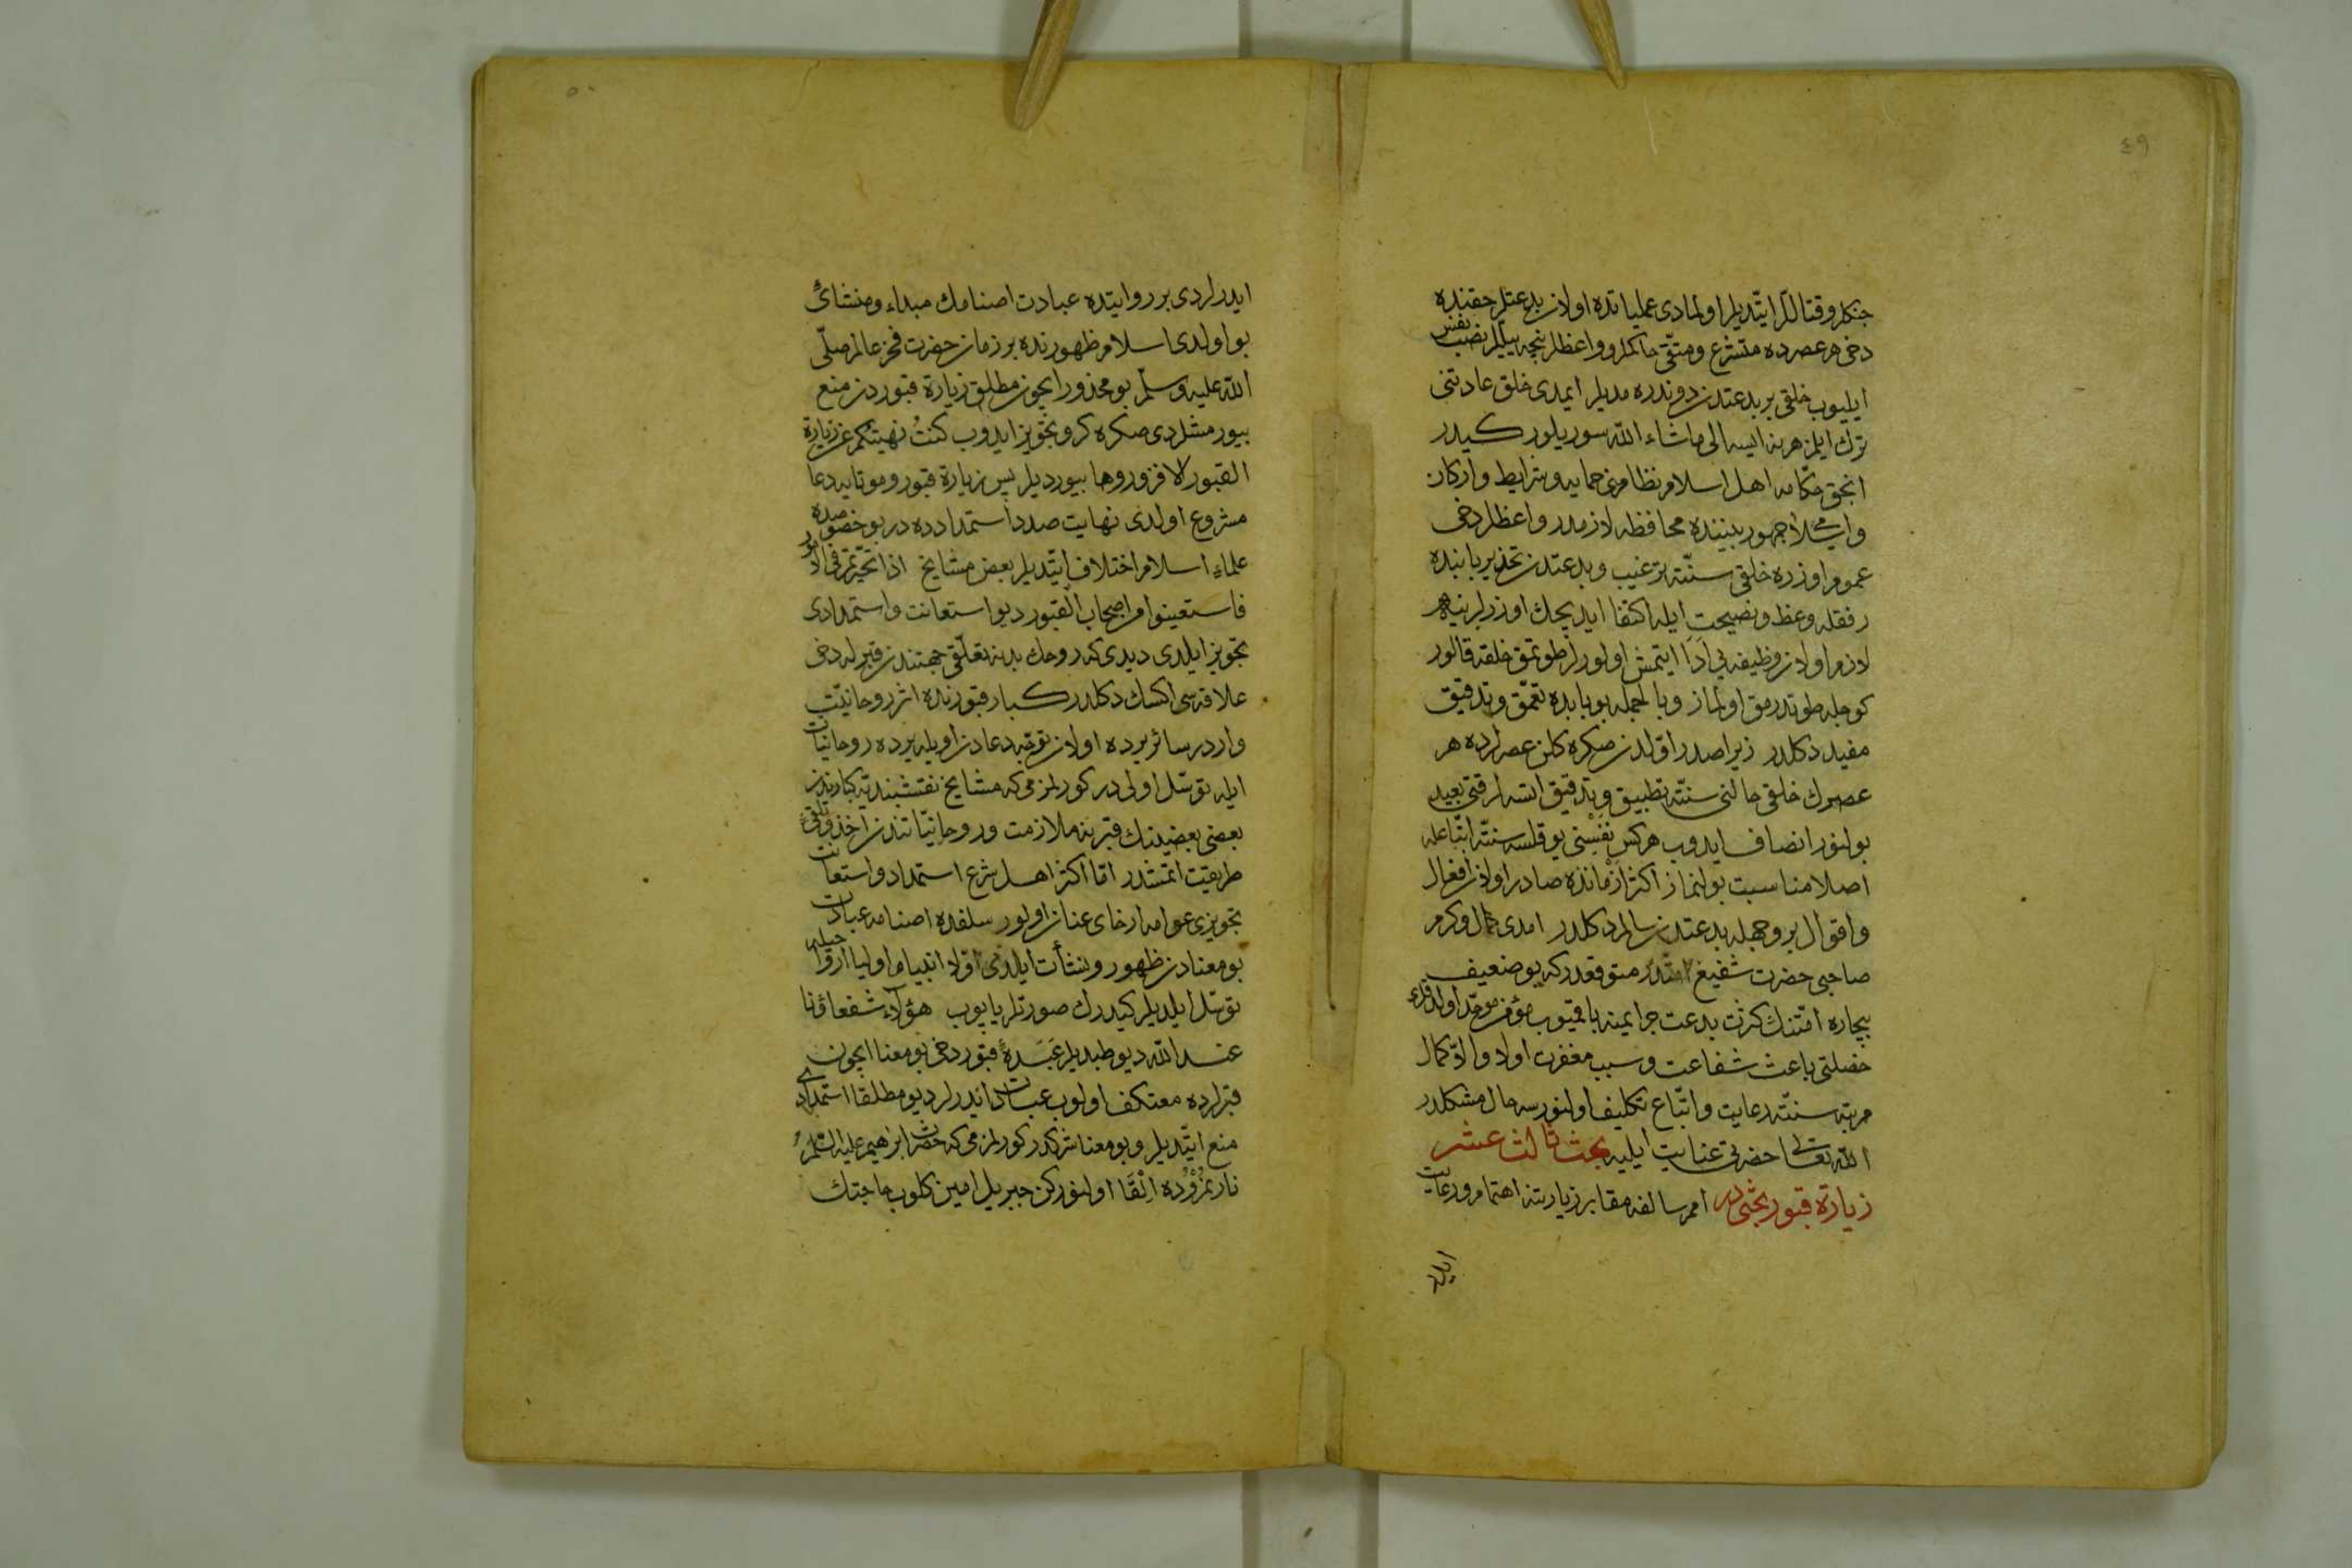 ٤٩
جنكلر و قتاللر ایتدیلر اولمادی عملیاتده اولان بدعتلر حقنده
دخی هر عصرده متشرع و متقی حاكملر و واعظلر نیچه ییللر نصب نفس
ایلیوب خلقی بر بدعتدن دوندره مدیلر ایمدی خلق عادتنی
ترك ایلمز هر نه ایسه الی ماشاء الله سوریلور كیدر
انجق حكامه اهل اسلام نظامنی حمایه و شرایط و اركان
واسلامی جمهور بیننده محافظه لازمدر واعظلر دخی
عموم اوزره خلقی سنته ترغیب و بدعتدن تحذیر بابنده
رفقله وعظ و نصیحت ایله اكتفا ایدیجك اوزرلرینه
لازم اولان وظیفه یی ادا ایتمش اولورلر طوتمق خلقه قالور
كوجله طوتدرمق اولماز و بالجمله بو بابده تعمق و تدقیق
مفید دكلدر زیرا صدر اولدن صكره كلن عصرلرده هر
عصرك خلقی حالنی سنته تطبیق و تدقیق ایتسه لر قتی بعید
بولنور انصاف ایدوب هركس نفسنی یوقلسه سنته اتباعله
اصلا مناسبت بولنماز اكثر ازمانده صادر اولان افعال
و اقوال بر وجهله بدعتدن سالم دكلدر امدی كمال و كرم
صاحبی حضرت شفیع امتدن متوقعدر كه بو ضعیف
بیچاره امتنك كثرت بدعت جرایمنه باقمیوب مؤمن موحد اولدقلری
خصلتی باعث شفاعت و سبب مغفرت اولا والا كمال
مرتبه سنته رعایت و اتباع تكلیف اولنورسه حال مشكلدر
الله تعالی حضرتی عنایت ایلیه بحث ثالث عشر
زیارة قبور بحثی در امم سالفه مقابر زیارتنه اهتمام و رعایت
ایدرلر
٥٠
ایدرلردی بر روایتده عبادت اصنامك مبداء و منشائی
بو اولدی اسلام ظهورنده بر زمان حضرت فخر عالم صلی
الله علیه وسلم بو محذور ایچون مطلق زیارة قبوردن منع
بیورمشلردی صكره كرو تجویز ایدوب كنت نهیتكم عن زیارة
القبور الا فزوروها بیوردیلر پس زیارة قبور و موتایه دعا
مشروع اولدی نهایت صدد استمدادده در بو خصوصده
علماء اسلام اختلاف ایتدیلر بعض مشایخ اذا تحیرتم فی الامور
فاستعینوا من اصحاب القبور دیو استعانت و استمدادی
تجویز ایلدی دیدی كه روحك بدنه تعلقی جهتندن قبرله دخی
علاقه سی اكسك دكلدر كبار قبورنده اثر روحانیت
واردر سائر یرده اولان توجه دعادن اویله یرده روحانیات
ایله توسل اولی در كورلمزمی كه مشایخ نقشبندیه كبارندن
بعضی بعضینك قبرینه ملازمت و روحانیاتندن اخذ و تلقئ
طریقت اتمشدر اما اكثر اهل شرع استمداد و استعانت
تجویزی عوامه ارخای عنان اولور سلفده اصنامه عبادت
بو معنادن ظهور و نشأت ایلدی اولا انبیا و اولیا ارواحیله
توسل ایلدیلر كیدرك صورتلر یاپوب هؤلاء شفعاؤنا
عند الله دیو طپدیلر عبدۀ قبور دخی بو معنا ایچون
قبرلرده معتكف اولوب عبادت ایدرلر دیو مطلقا استمدادی
منع ایتدیلر و بو معنا شركدر كورلمزمی كه حضرت ابراهیم علیه السلام
نار نمرودده القا اولنوركن جبریل امین كلوب حاجتك